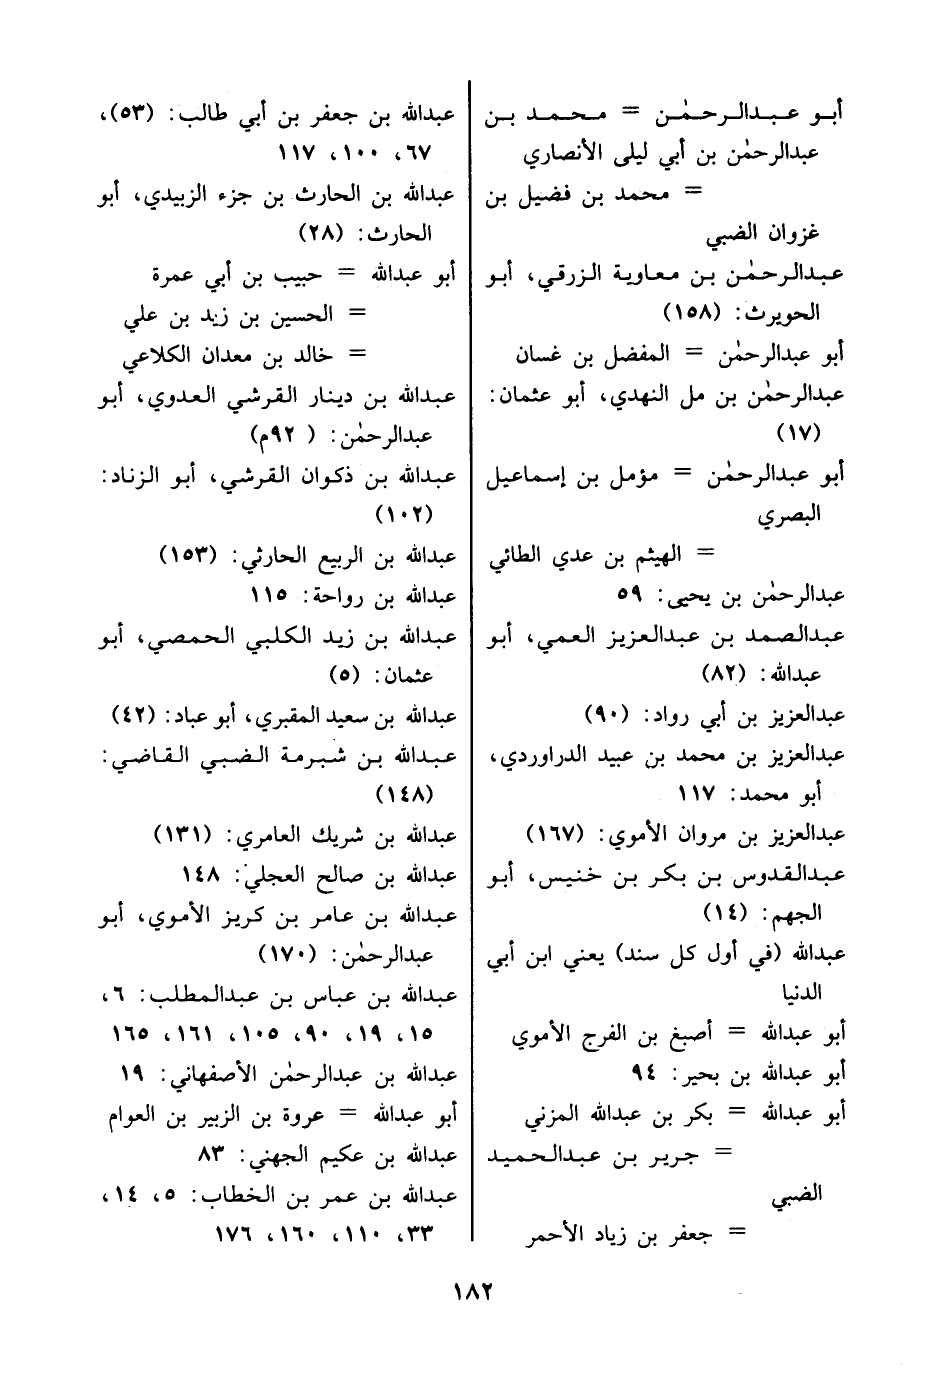 أبو عبدالرحمٰن = محمد بن
عبدالرحمٰن بن أبي ليلى الأنصاري
= محمد بن فضيل بن
غزوان الضبي
عبدالرحمٰن بن معاوية الزرقي، أبو
الحويرث: (١٥٨)
أبو عبدالرحمٰن = المفضل بن غسان
عبدالرحمٰن بن مل النهدي، أبو عثمان:
(١٧)
أبو عبدالرحمٰن = مؤمل بن إسماعيل
البصري
= الهيثم بن عدي الطائي
عبدالرحمٰن بن يحيى: ٥٩
عبدالصمد بن عبدالعزيز العمي، أبو
عبدالله: (٨٢)
عبدالعزيز بن أبي رواد: (٩٠)
عبدالعزيز بن محمد بن عبيد الدراوردي،
أبو محمد: ١١٧
عبدالعزيز بن مروان الأموي: (١٦٧)
عبدالقدوس بن بكر بن خنيس، أبو
الجهم: (١٤)
عبدالله (في أول كل سند) يعني ابن أبي
الدنيا
أبو عبدالله = أصبغ بن الفرج الأموي
أبو عبدالله بن بحير: ٩٤
أبو عبدالله = بكر بن عبدالله المزني
= جرير بن عبدالحميد
الضبي
= جعفر بن زياد الأحمر
عبدالله بن جعفر بن أبي طالب: (٥٣)،
٦٧، ١٠٠، ١١٧
عبدالله بن الحارث بن جزء الزبيدي، أبو
الحارث: (٢٨)
أبو عبدالله = حبيب بن أبي عمرة
= الحسين بن زيد بن علي
= خالد بن معدان الكلاعي
عبدالله بن دينار القرشي العدوي، أبو
عبدالرحمٰن: ( ٩٢م)
عبدالله بن ذكوان القرشي، أبو الزناد:
(١٠٢)
عبدالله بن الربيع الحارثي: (١٥٣)
عبدالله بن رواحة: ١١٥
عبدالله بن زيد الكلبي الحمصي، أبو
عثمان: (٥)
عبدالله بن سعيد المقبري، أبو عباد: (٤٢)
عبدالله بن شبرمة الضبي القاضي:
(١٤٨)
عبدالله بن شريك العامري: (١٣١)
عبدالله بن صالح العجلي: ١٤٨
عبدالله بن عامر بن كريز الأموي، أبو
عبدالرحمٰن: (١٧٠)
عبدالله بن عباس بن عبدالمطلب: ٦،
١٥، ١٩، ٩٠، ١٠٥، ١٦١، ١٦٥
عبدالله بن عبدالرحمٰن الأصفهاني: ١٩
أبو عبدالله = عروة بن الزبير بن العوام
عبدالله بن عكيم الجهني: ٨٣
عبدالله بن عمر بن الخطاب: ٥، ١٤،
٣٣، ١١٠، ١٦٠، ١٧٦
١٨٢